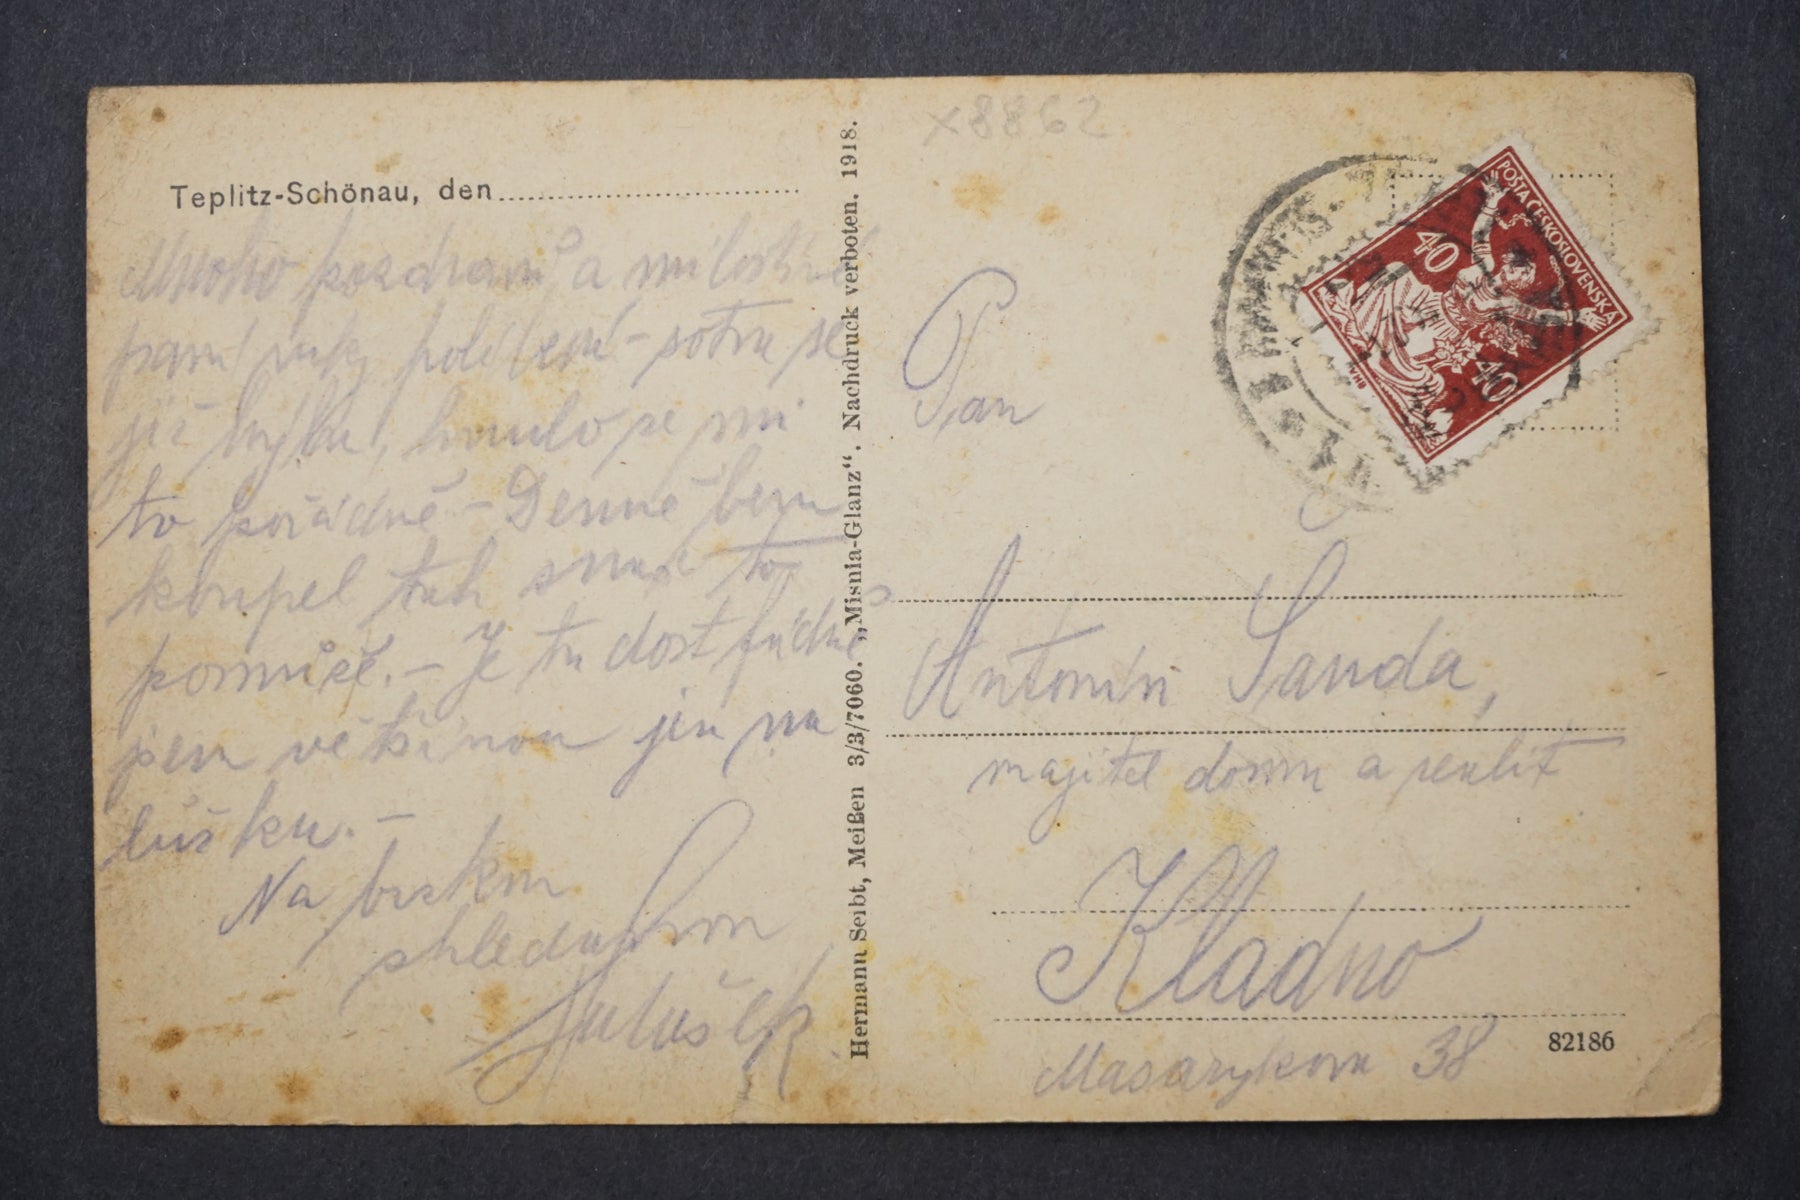 x8862
Teplitz-Schönau, den
Mnoho pozdravů a milostivé
paní ruky políbení – sotva se
již hýbu, hnulo se mi
to pořádně – Denně beru
koupel tak snad to
pomůže. – Je tu dost fádně
jen většinou jen na
lůžku. –
Na brzkém
shledání
Hermann Seibt, Meißen 3/3/7060. „Misnia-Glanz“. Nachdruck verboten. 1918.
POŠTA ČESKOSLOVENSKÁ
40
40
Pan
Antonín Sanda,
majitel domu a realit
Kladno
Masarykova 38
82186